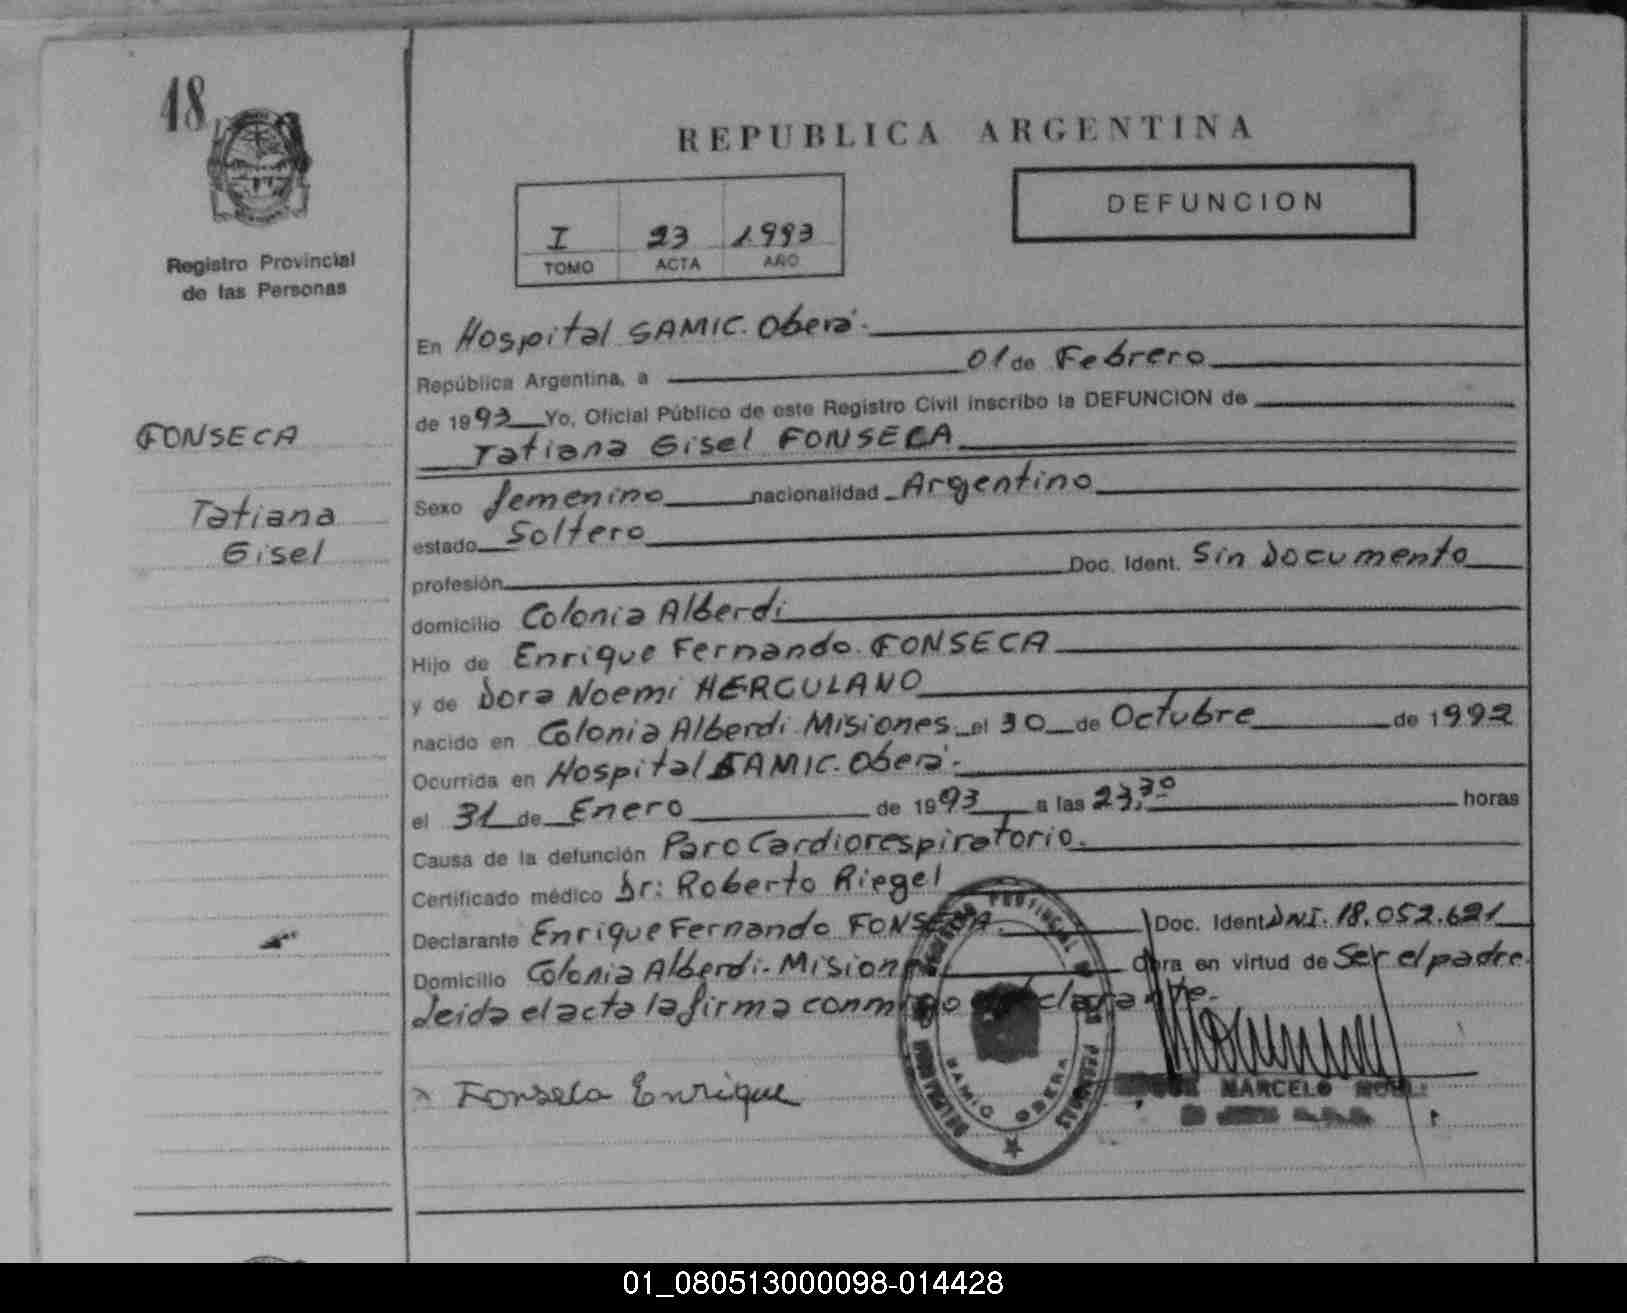 18
Registro Provincial
de las Personas
FONSECA
Tatiana
Gisel
REPUBLICA ARGENTINA
I 23 1993
TOMO ACTA AÑO
DEFUNCION
En Hospital SAMIC. Oberá.
República Argentina, a 01 de Febrero
de 1993 Yo, Oficial Público de este Registro Civil inscribo la DEFUNCION de
Tatiana Gisel FONSECA
Sexo femenino nacionalidad Argentino
estado Soltero
profesión Doc. Ident. Sin Documento
domicilio Colonia Alberdi
Hijo de Enrique Fernando FONSECA
y de Dora Noemi HERCULANO
nacido en Colonia Alberdi Misiones el 30 de Octubre de 1992
Ocurrida en Hospital SAMIC. Oberá.
el 31 de Enero de 1993 a las 23,30 horas
Causa de la defunción Paro Cardiorespiratorio.
Certificado médico Dr: Roberto Riegel
Declarante Enrique Fernando FONSECA. Doc. Ident. DNI. 18.052.621
Domicilio Colonia Alberdi - Misiones Obra en virtud de Ser el padre.
Leida el acta la firma conmigo el declarante.
x Fonseca Enrique
PROVINCIAL DE LAS PERSONAS
SAMIC OBERA
MARCELO
01_080513000098-014428